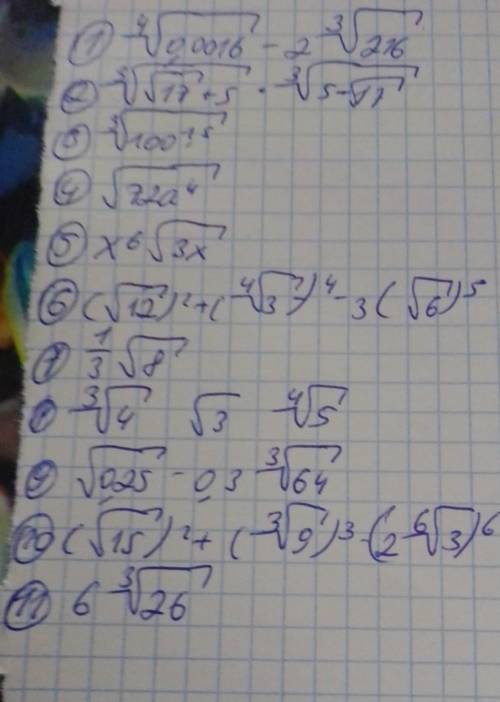 ① ⁴√0,0016 - 2 ³√216
② ³√(√17 + 5) · ³√(5 - √17)
③ ³√
④ √(72a⁴)
⑤ x⁶√(3x)
⑥ (√12)² + (⁴√3)⁴ - 3(√6)⁵
⑦ 1/3 √8
³√4 √3 ⁴√5
⑨ √0,25 - 0,3 ³√64
⑩ (√15)² + (³√9)³ - (2 ⁶√3)⁶
⑪ 6 ³√26